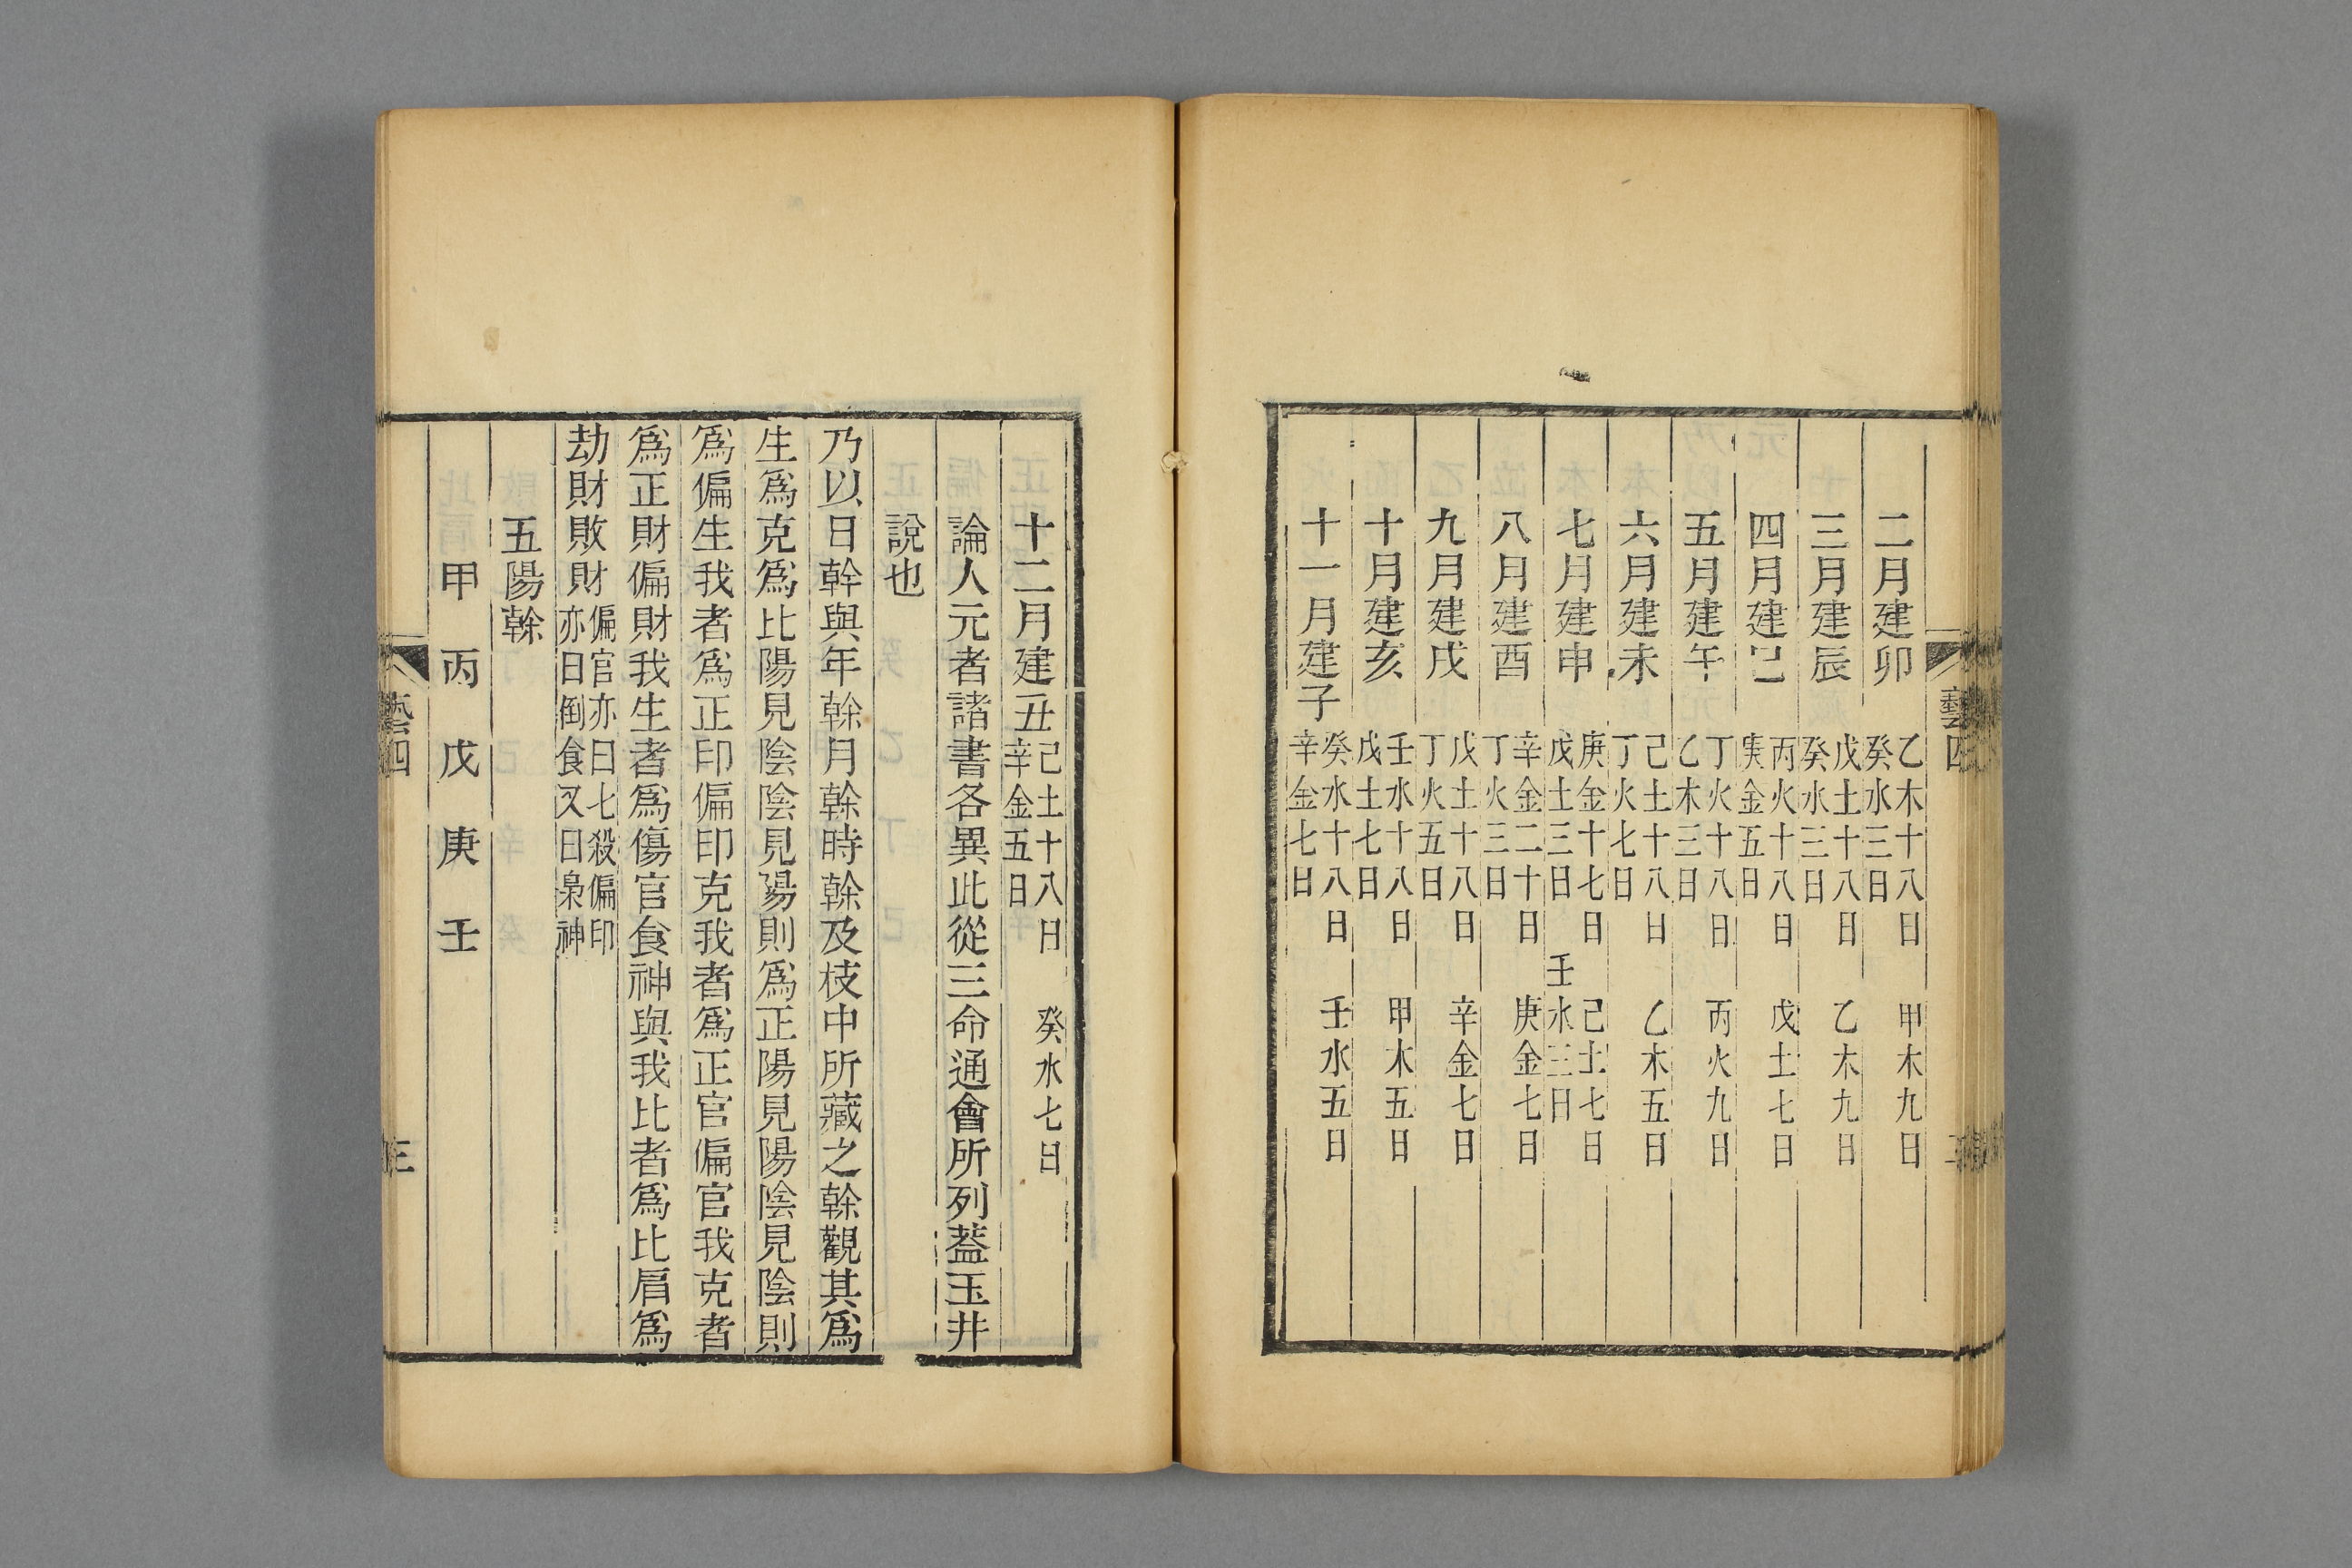 藝四
二月建卯 乙木十八日 甲木九日 癸水三日
三月建辰 戊土十八日 乙木九日 癸水三日
四月建巳 丙火十八日 戊土七日 庚金五日
五月建午 丁火十八日 丙火九日 乙木三日
六月建未 己土十八日 乙木五日 丁火七日
七月建申 庚金十七日 己土七日 戊土三日 壬水三日
八月建酉 辛金二十日 庚金七日 丁火三日
九月建戌 戊土十八日 辛金七日 丁火五日
十月建亥 壬水十八日 甲木五日 戊土七日
十一月建子 癸水十八日 壬水五日 辛金七日
十二月建丑 己土十八日 癸水七日 辛金五日
論人元者諸書各異此從三命通會所列葢玉井
說也
乃以日幹與年榦月榦時榦及枝中所藏之榦觀其爲
生爲克爲比陽見陰陰見陽則爲正陽見陽陰見陰則
爲偏生我者爲正印偏印克我者爲正官偏官我克者
爲正財偏財我生者爲傷官食神與我比者爲比肩爲
劫財敗財 偏官亦曰七殺偏印亦曰倒食又曰梟神
五陽榦
甲 丙 戊 庚 壬
藝四 三